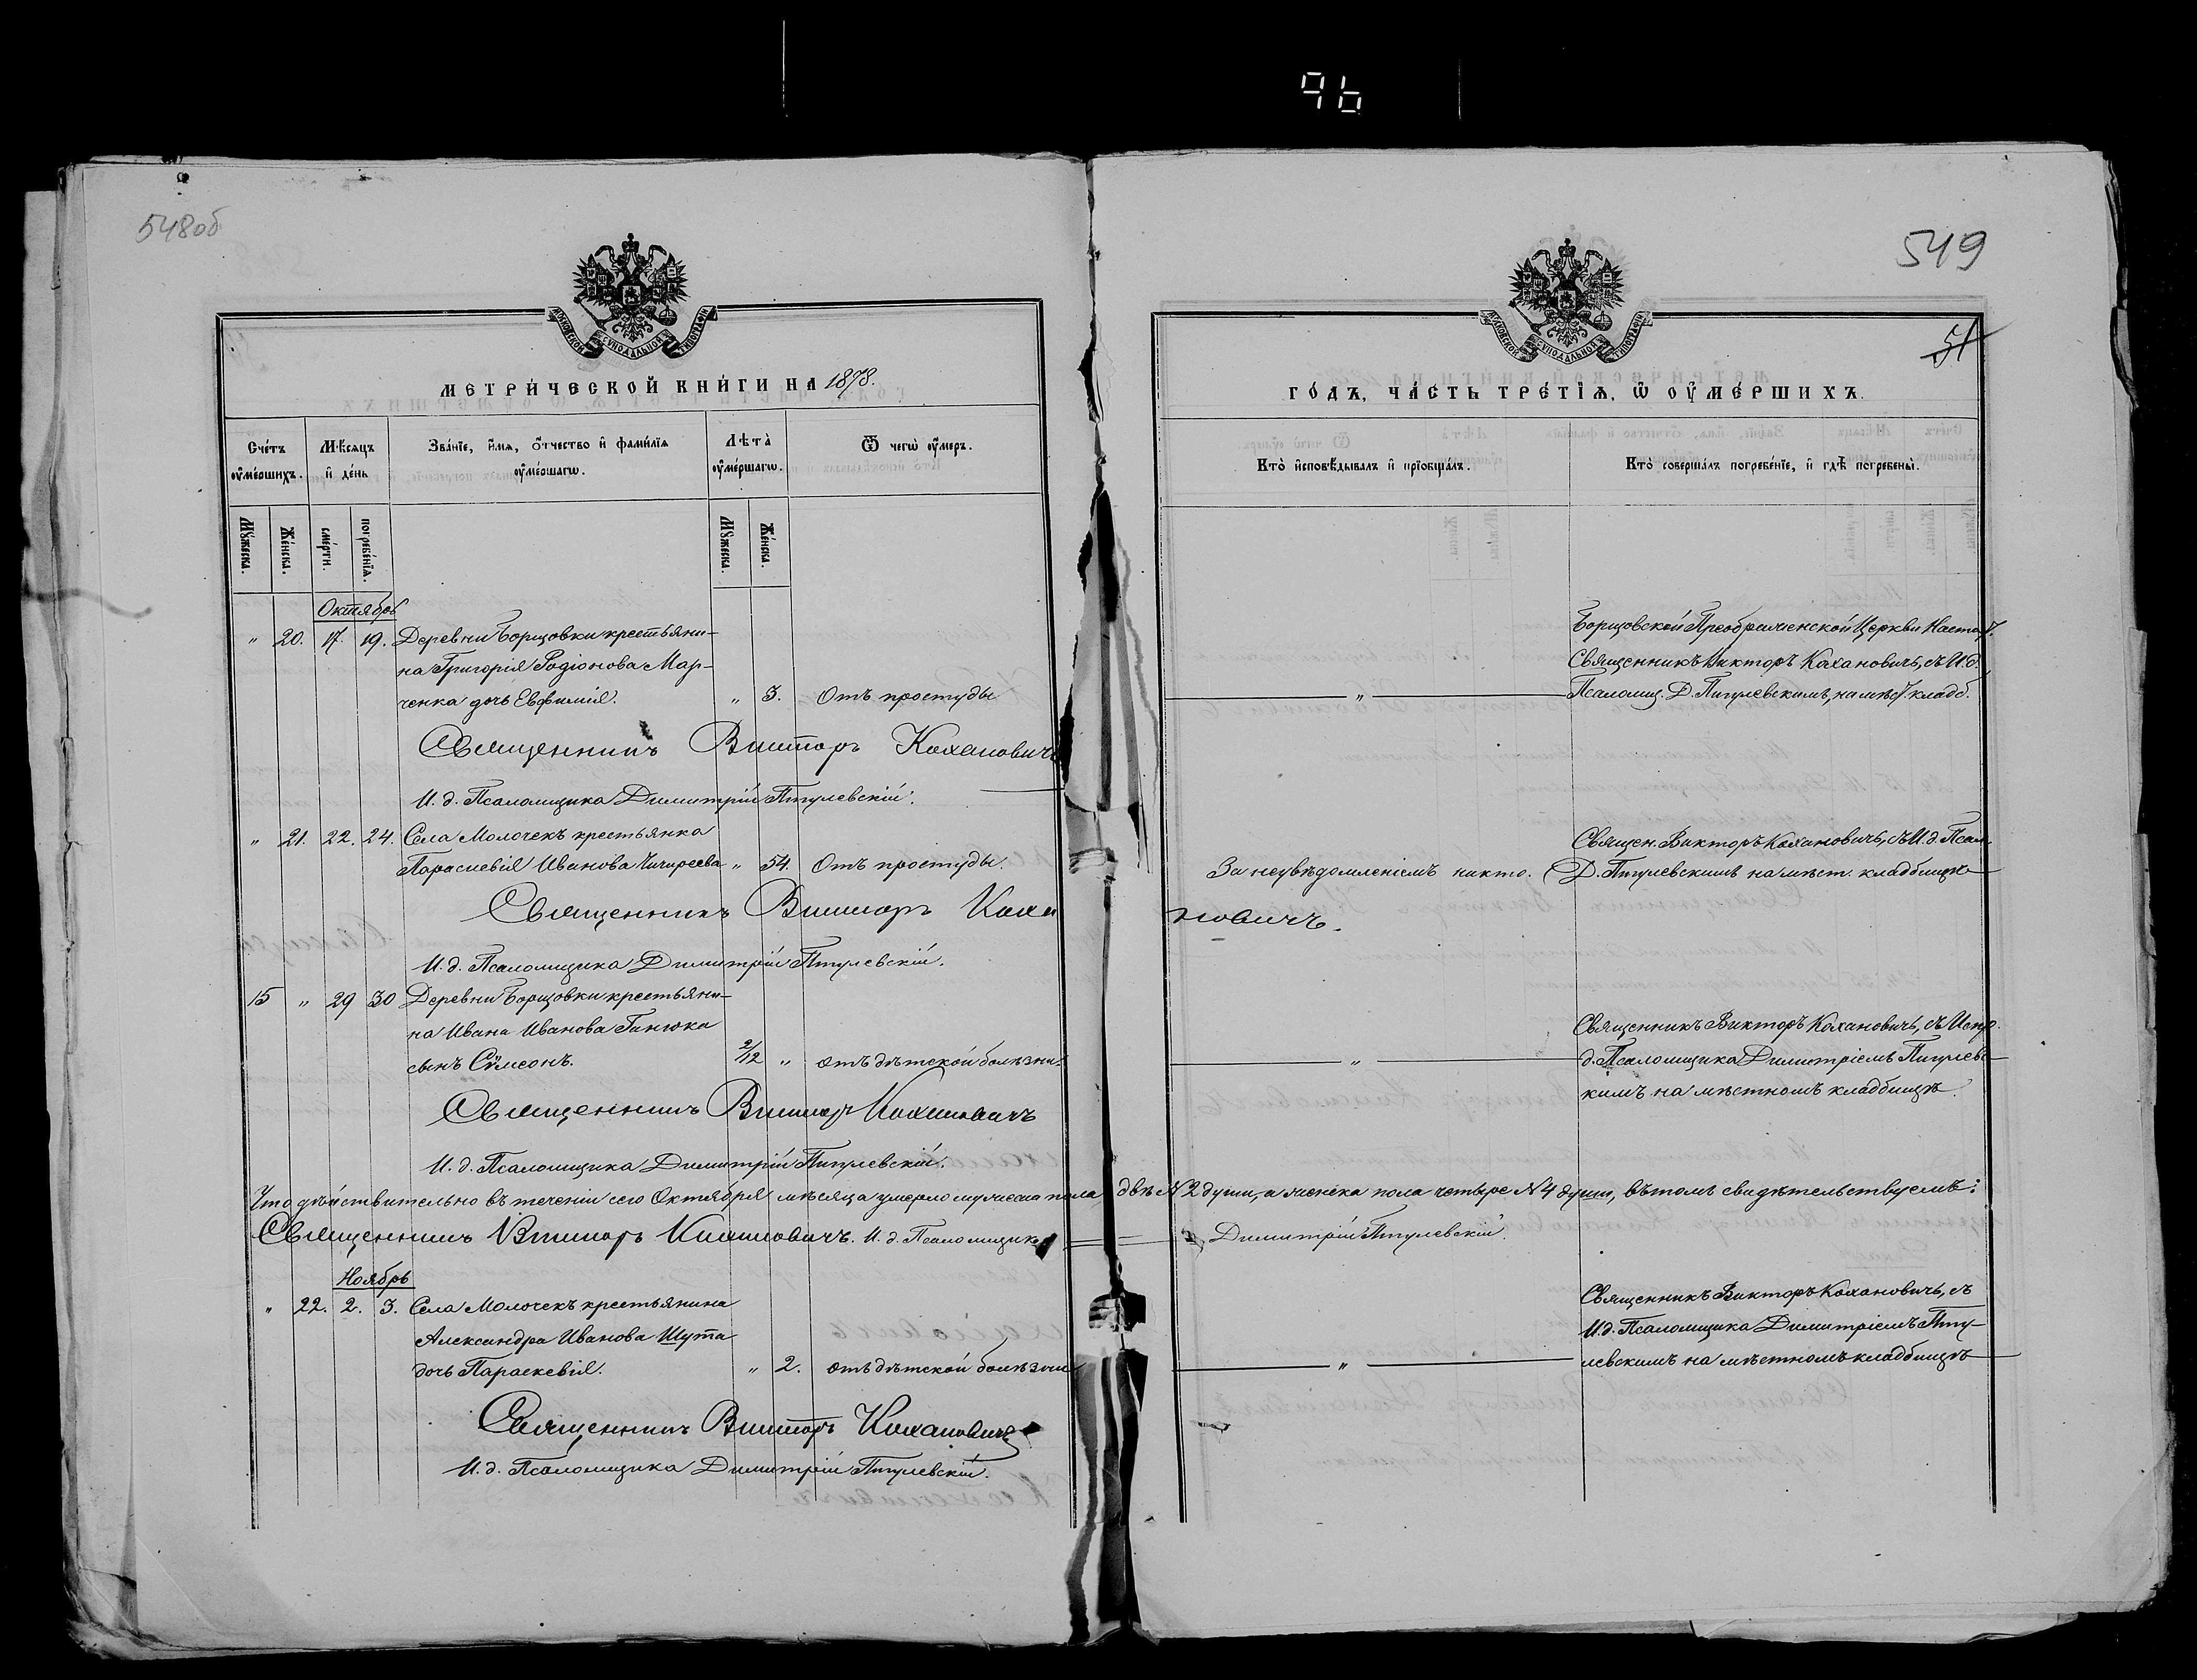 96
548об
549
51
МОСКОВСКОЙ СѴНОДАЛЬНОЙ ТИПОГРАФІИ
МОСКОВСКОЙ СѴНОДАЛЬНОЙ ТИПОГРАФІИ
МЕТРИ́ЧЕСКОЙ КНИ́ГИ НА 1878.
ГО́ДЪ, ЧА́СТЬ ТРЕ́ТІѦ, Ѡ ОУ҆МЕ́РШИХЪ.
Сче́тъ оу҆ме́ршихъ.
Мѣ́сяцъ и҆ де́нь
Зва́ніе, и҆́мя, ѻ҆́тчество и҆ фами́лїя оу҆ме́ршагѡ.
Лѣта̀ оу҆ме́ршагѡ.
Ѿ чегѡ̀ оу҆́меръ.
Кто̀ и҆сповѣ́дывалъ и҆ прїобща́лъ.
Кто̀ соверша́лъ погребе́нїе, и҆ гдѣ̀ погребены̀.
Мꙋ́жеска.
Же́нска.
сме́рти.
погребе́нїѧ.
Мꙋ́жеска.
Же́нска.
Октябрь
" 20. 17. 19. Деревни Борщовки крестьяни-
на Григорія Родіонова Мар-
ченка дочь Евфимія. " 3. Отъ простуды
Борщовской Преображенской Церкви Настоят.
Священникъ Викторъ Кахановичъ, съ И.д.
— " — Псаломщ. Д. Пигулевскимъ, на мѣст. кладб.
Священникъ Викторъ Кохановичъ
И. д. Псаломщика Димитрій Пигулевскій.
" 21. 22. 24. Села Молочекъ крестьянка
Параскевія Иванова " 54. Отъ простуды.
Священ. Викторъ Кахановичъ, съ И.д. Псал.
За неувѣдомленіемъ никто. Д. Пигулевскимъ на мѣст. кладбищѣ
Священникъ Викторъ Кохановичъ.
И. д. Псаломщика Димитрій Пигулевскій.
15 " 29 30 Деревни Борщовки крестьяни-
на Ивана Иванова Ганжка
сынъ Сѵмеонъ. 2/12 " отъ дѣтской болѣзни.
Священникъ Викторъ Кахановичъ, съ Испр.
— " — д. Псаломщика Димитріемъ Пигулевс-
кимъ на мѣстномъ кладбищѣ.
Священникъ Викторъ Кохановичъ
И. д. Псаломщика Димитрій Пигулевскій.
Что дѣйствительно въ теченіи сего Октября мѣсяца умерло мужеска пола двѣ N 2 души, а женска пола четыре N 4 души, въ томъ свидѣтельствуемъ:
Священникъ Викторъ Кохановичъ. И. д. Псаломщика Димитрій Пигулевскій.
Ноябрь
" 22. 2. 3. Села Молочекъ крестьянина
Александра Иванова Шута
дочь Параскевія. " 2. отъ дѣтской болѣзни
Священникъ Викторъ Кохановичъ, съ
И.д. Псаломщика Димитріемъ Пигу-
— " — левскимъ на мѣстномъ кладбищѣ
Священникъ Викторъ Кохановичъ
И. д. Псаломщика Димитрій Пигулевскій.